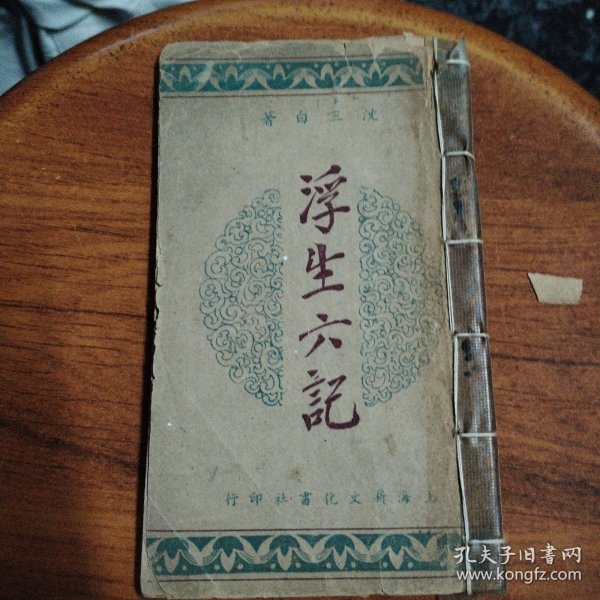 沈三白著
浮生六記
上海新文化書社印行
孔夫子旧書网
www.kongfz.com